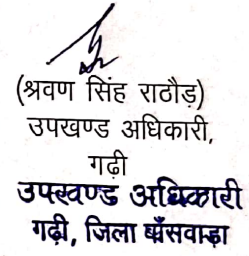 (श्रवण सिंह राठौड़)
उपखण्ड अधिकारी,
गढ़ी
उपखण्ड अधिकारी
गढ़ी, जिला बाँसवाड़ा